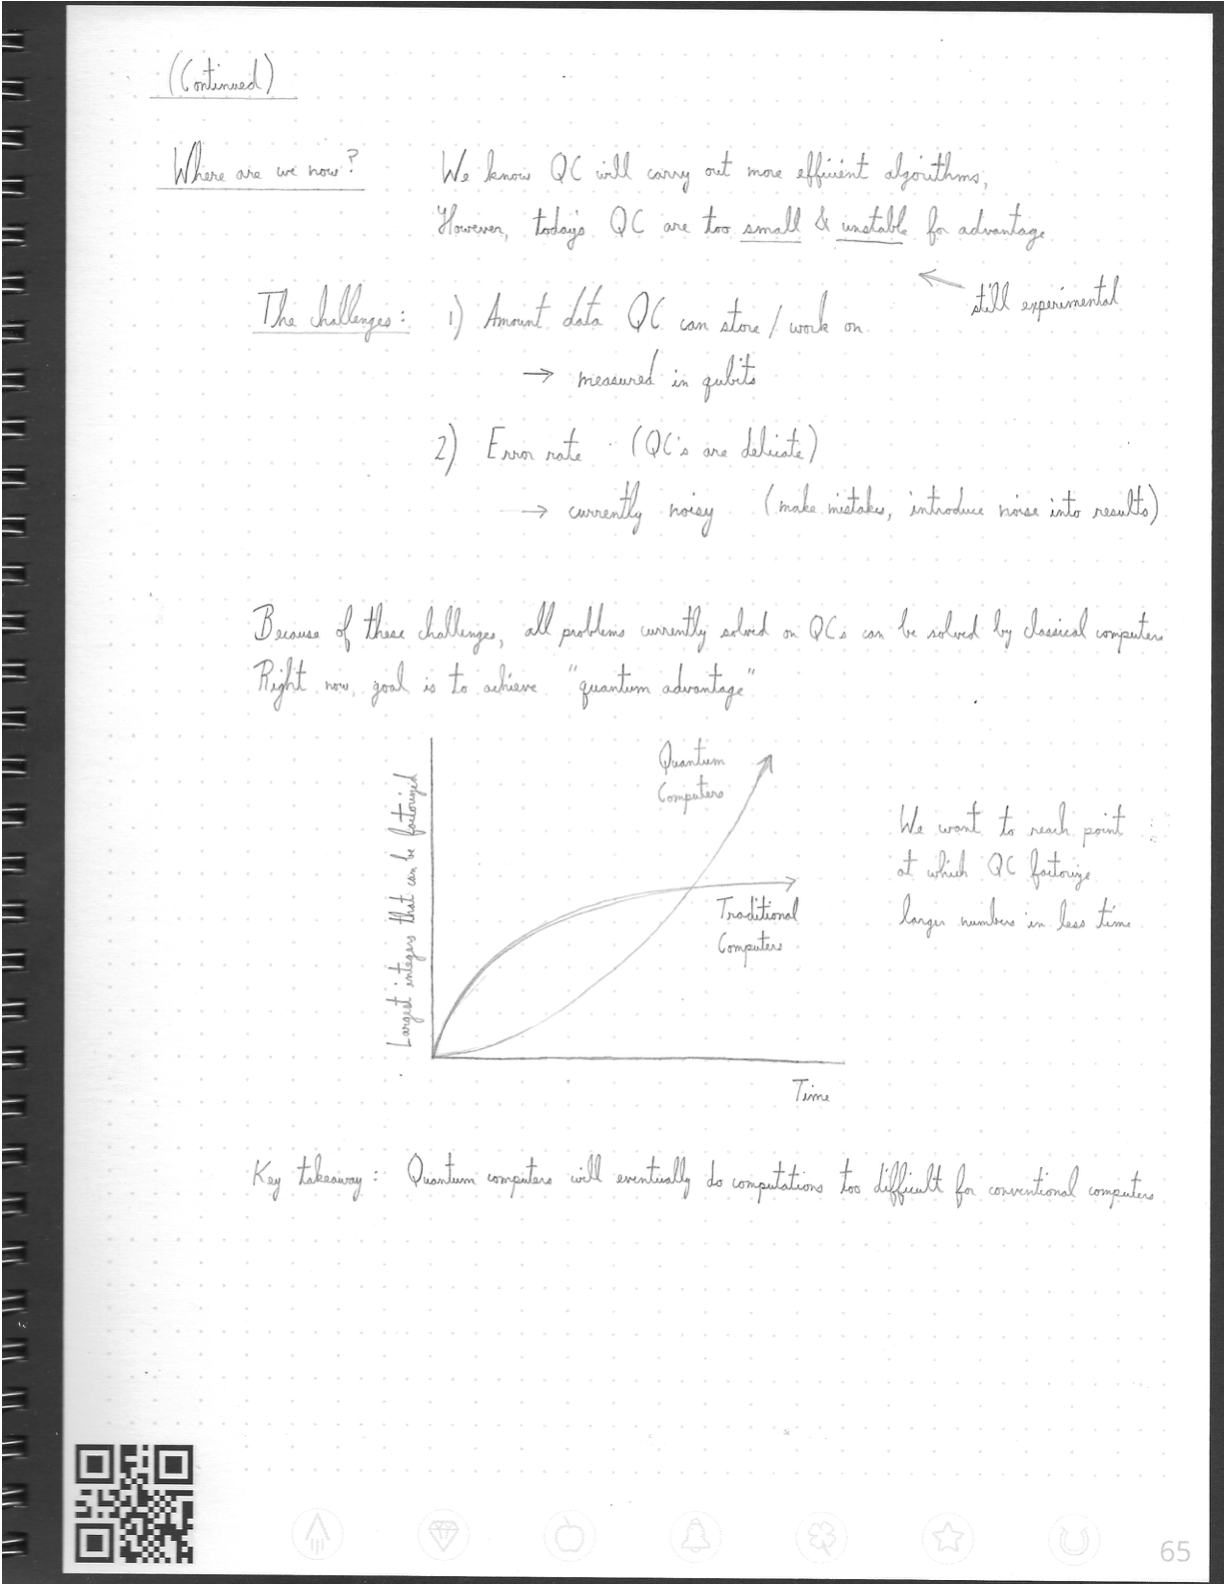 (Continued)
Where are we now? We know QC will carry out more efficient algorithms,
However, today's QC are too small & unstable for advantage
still experimental
The challenges: 1) Amount data QC can store / work on
→ measured in qubits
2) Error rate (QC's are delicate)
→ currently noisy (make mistakes, introduce noise into results)
Because of these challenges, all problems currently solved on QCs can be solved by classical computers
Right now, goal is to achieve "quantum advantage"
Largest integers that can be factorized
Quantum
Computers
Traditional
Computers
Time
We want to reach point
at which QC factorize
larger numbers in less time
Key takeaway: Quantum computers will eventually do computations too difficult for conventional computers
65